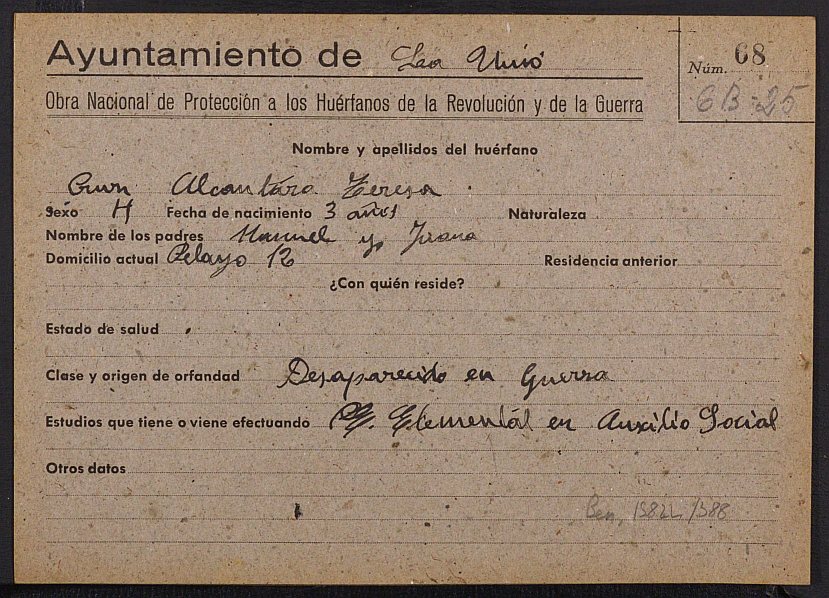 Ayuntamiento de La Unió
Núm. 68
6B-25
Obra Nacional de Protección a los Huérfanos de la Revolución y de la Guerra
Nombre y apellidos del huérfano
Alcantara Teresa
Sexo H Fecha de nacimiento 3 años Naturaleza
Nombre de los padres Manuel y Juana
Domicilio actual Pelayo 12 Residencia anterior
¿Con quién reside?
Estado de salud
Clase y origen de orfandad Desaparecido en Guerra
Estudios que tiene o viene efectuando Elemental en Auxilio Social
Otros datos